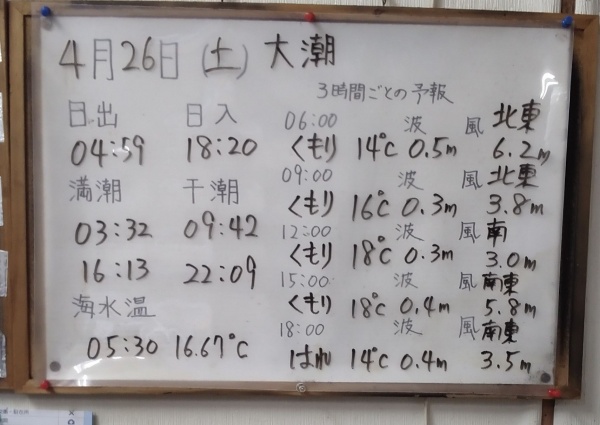 4月26日 (土) 大潮
日出 日入
04:59 18:20
満潮 干潮
03:32 09:42
16:13 22:09
海水温
05:30 16.67℃
3時間ごとの予報
06:00 波 風 北東
くもり 14℃ 0.5m 6.2m
09:00 波 風 北東
くもり 16℃ 0.3m 3.8m
12:00 波 風 南
くもり 18℃ 0.3m 3.0m
15:00 波 風 南東
くもり 18℃ 0.4m 5.8m
18:00 波 風 南東
はれ 14℃ 0.4m 3.5m